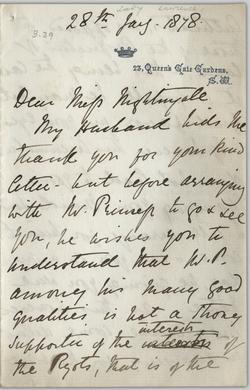 Lady Lawrence
3.29
28th Jany. 1878.
23, Queen's Gate Gardens,
S.W.
Dear Miss Nightingale
My Husband bids me
thank you for your kind
letter - but before arranging
with Mr. Prinsep to go & see
you, he wishes you to
understand that Mr. P.
among his many good
qualities is not a strong
interests
supporter of the interests of
the Ryots, that is of the